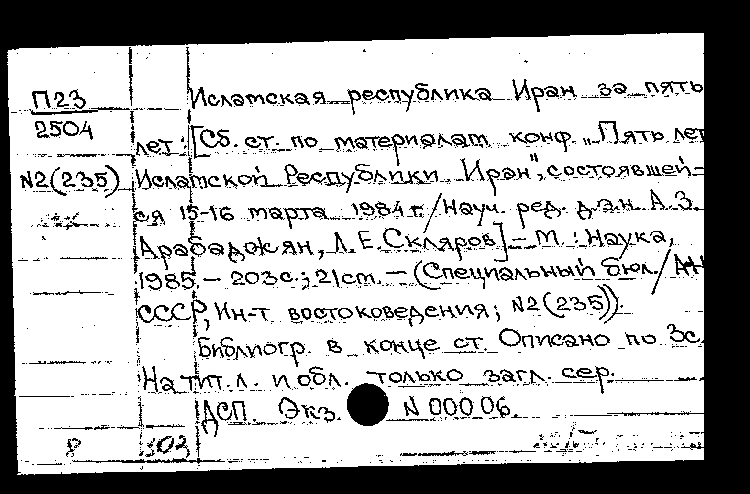 П23 Исламская республика Иран за пять
2504 лет: [Сб. ст. по материалам конф. „Пять лет
N2(235) Исламской Республики Иран", состоявшей-
ся 15-16 марта 1984 г. / Науч. ред. д.э.н. А.З.
Арабаджян, Л.Е.Скляров] – М.: Наука,
1985. – 203с.; 21 cm. – (Специальный бюл. / АН
СССР, Ин-т востоковедения; N2(235)).
Библиогр. в конце ст. Описано по 3с.
На тит.л. и обл. только загл. сер.
ДСП. Экз. N 00006.
8 303